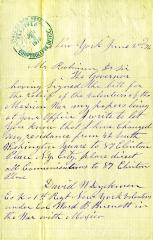 New York June 2
Mr Robinson Dr sir
The Governor
having signed the bill for
the relief of the volunteers of the
Mexican War my papers being
at your Office I write to let
you know that I have changed
my residence from 46 South
Washington Square to 87 Clinton
Place N.Y. City, please direct
all Communications to 87 Clinton
Place
David
Co K - 1st Regt New York Volunteers
under Col Ward B Burnett in the
War with Mexico